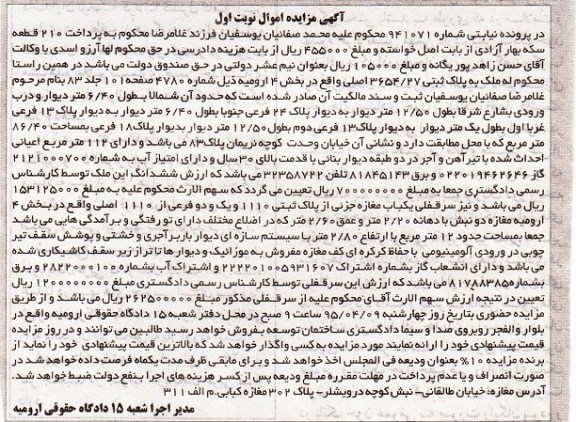 آگهی مزایده اموال نوبت اول
در پرونده نیابتی شماره 941071 محکوم علیه محمد صفائیان یوسفیان فرزند غلامرضا محکوم به پرداخت 210 قطعه
سکه بهار آزادی از بابت اصل خواسته و مبلغ 455000 ریال از بابت هزینه دادرسی در حق محکوم لها آرزو اسدی با وکالت
آقای حسن زاهد پور یگانه و مبلغ 105000 ریال بعنوان نیم عشر دولتی در حق صندوق دولت می باشد در همین راستا
محکوم له ملک به پلاک ثبتی 3654/27 اصلی واقع در بخش 4 ارومیه ذیل شماره 4780 صفحه 101 جلد 83 بنام مرحوم
غلامرضا صفائیان یوسفیان ثبت و سند مالکیت آن صادر شده است که حدود آن شمالا بطول 6/40 متر دیوار و درب
ورودی بشارع شرقا بطول 12/50 متر دیوار به دیوار پلاک 24 فرعی جنوبا بطول 6/40 متر دیوار به دیوار پلاک 13 فرعی
غربا اول بطول یک متر دیوار به دیوار پلاک 13 فرعی دوم بطول 12/50 متر دیوار بدیوار پلاک 18 فرعی بمساحت 86/40
متر مربع که با محل مطابقت دارد و نشانی آن خیابان وحدت کوچه نریمان پلاک 83 می باشد و دارای 112 متر مربع اعیانی
احداث شده با تیر آهن و آجر در دو طبقه دیوار بنائی با قدمت بالای 30 سال و دارای امتیاز آب به شماره 2121000700
گاز 022019462646 و برق 81845143 تلفن 32358722 می باشد که ارزش ششدانگ این ملک توسط کارشناس
رسمی دادگستری جمعا به مبلغ 700000000 ریال تعیین می گردد که سهم الارث محکوم علیه به مبلغ 153125000
ریال می باشد و نیز سرقفلی یکباب مغازه جزئی از پلاک ثبتی 1110 و یک و دو فرعی از 1110 اصلی واقع در بخش 4
ارومیه مغازه دو نبش با دهانه 2/20 متر و عمق 2/60 متر که در اضلاع مختلف دارای تو رفتگی و بر آمدگی هایی می باشد
جمعا بمساحت حدود 12 متر مربع با ارتفاع 2/80 متر با سیستم سازه ای دیوار باربر آجری و خشتی و پوشش سقف تیر
چوبی در ورودی آلومینیومی با حفظ کرکره ای کف مغازه مفروش به موزائیک و دیوار ها تا تراز زیر سقف کاشیکاری شده
می باشد و دارای انشعاب گاز بشماره اشتراک 222201005931607 و اشتراک آب بشماره 2822000100 و برق
بشماره 81788385 می باشد که ارزش این سرقفلی توسط کارشناس رسمی دادگستری مبلغ 1200000000 ریال
تعیین در نتیجه ارزش سهم الارث آقای محکوم علیه از سرقفلی مذکور مبلغ 262500000 ریال می باشد و از طریق
مزایده حضوری بتاریخ روز چهارشنبه 95/04/09 ساعت 9 صبح در محل دفتر شعبه 15 دادگاه حقوقی ارومیه واقع در
بلوار والفجر روبروی صدا و سیما دادگستری ساختمان توسعه بفروش خواهد رسید طالبین می توانند و در روز مزایده
قیمت پیشنهادی خود را ارائه نمایند مورد مزایده به کسی واگذار خواهد شد که بالاترین قیمت پیشنهادی خود را نماید از
برنده مزایده 10% بعنوان ودیعه فی المجلس اخذ خواهد شد و برای مابقی ظرف مدت یکماه فرصت داده خواهد شد در
صورت انصراف و یا عدم پرداخت در مهلت مقرره مبلغ ودیعه پس از کسر هزینه های اجرا بنفع دولت ضبط خواهد شد.
آدرس مغازه: خیابان طالقانی- نبش کوچه درویشلر- پلاک 302 مغازه کبابی. م الف 311
مدیر اجرا شعبه 15 دادگاه حقوقی ارومیه